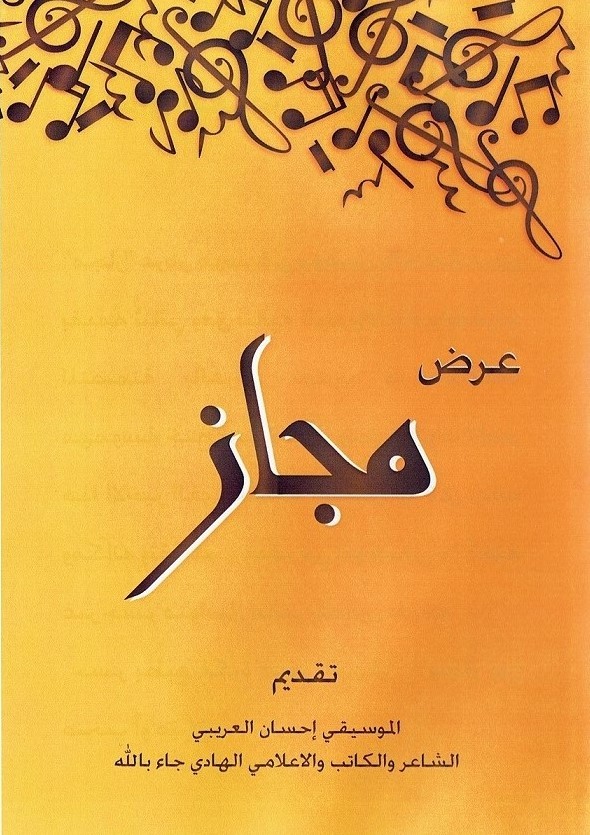 عرض
مجاز
تقديم
الموسيقي إحسان العريبي
الشاعر والكاتب والاعلامي الهادي جاء بالله